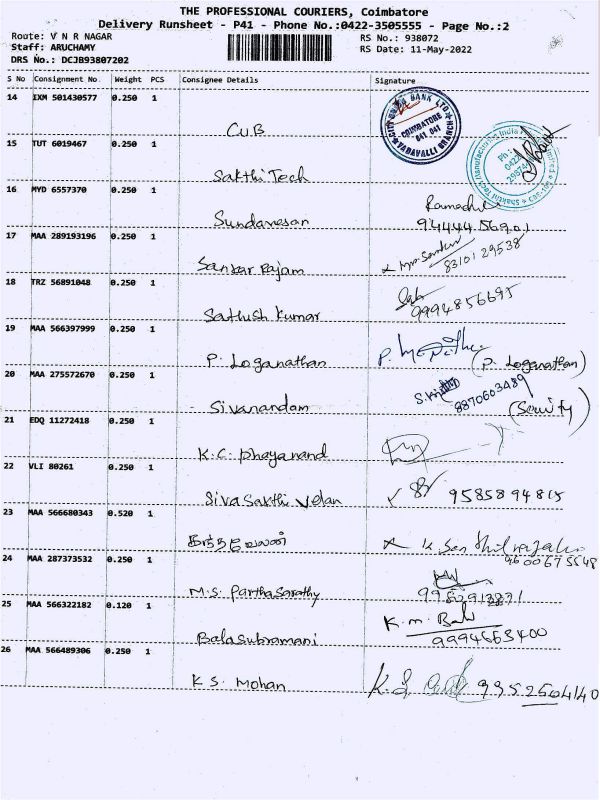 THE PROFESSIONAL COURIERS, Coimbatore
Delivery Runsheet - P41 - Phone No.:0422-3505555 - Page No.:2
Route: V N R NAGAR RS No.: 938072
Staff: ARUCHAMY RS Date: 11-May-2022
DRS No.: DCJB93807202
S No Consignment No. Weight PCS Consignee Details Signature
14 IXM 501430577 0.250 1
CUB
CITY UNION BANK LTD
COIMBATORE
641 041
VADAVALLI BRANCH
15 TUT 6019467 0.250 1
Sakthi Tech
16 MYD 6557370 0.250 1
Sundaresan 94444 56901
17 MAA 289193196 0.250 1
Sankar Rajam 8310129538
18 TRZ 56891048 0.250 1
Sathish Kumar 9994856695
19 MAA 566397999 0.250 1
P. Loganathan (P. Loganathan)
20 MAA 275572670 0.250 1
Sivanandam 8870603489 (Security)
21 EDQ 11272418 0.250 1
K.C. Dhayanand
22 VLI 80261 0.250 1
Siva Sakthi Velan 9585894815
23 MAA 566680343 0.520 1
கந்தவேலன்
24 MAA 287373532 0.250 1
M.S. Parthasarathy
25 MAA 566322182 0.120 1
Balasubramani K.m. Bala
9994663400
26 MAA 566489306 0.250 1
K S. Mohan K.S 9952504140